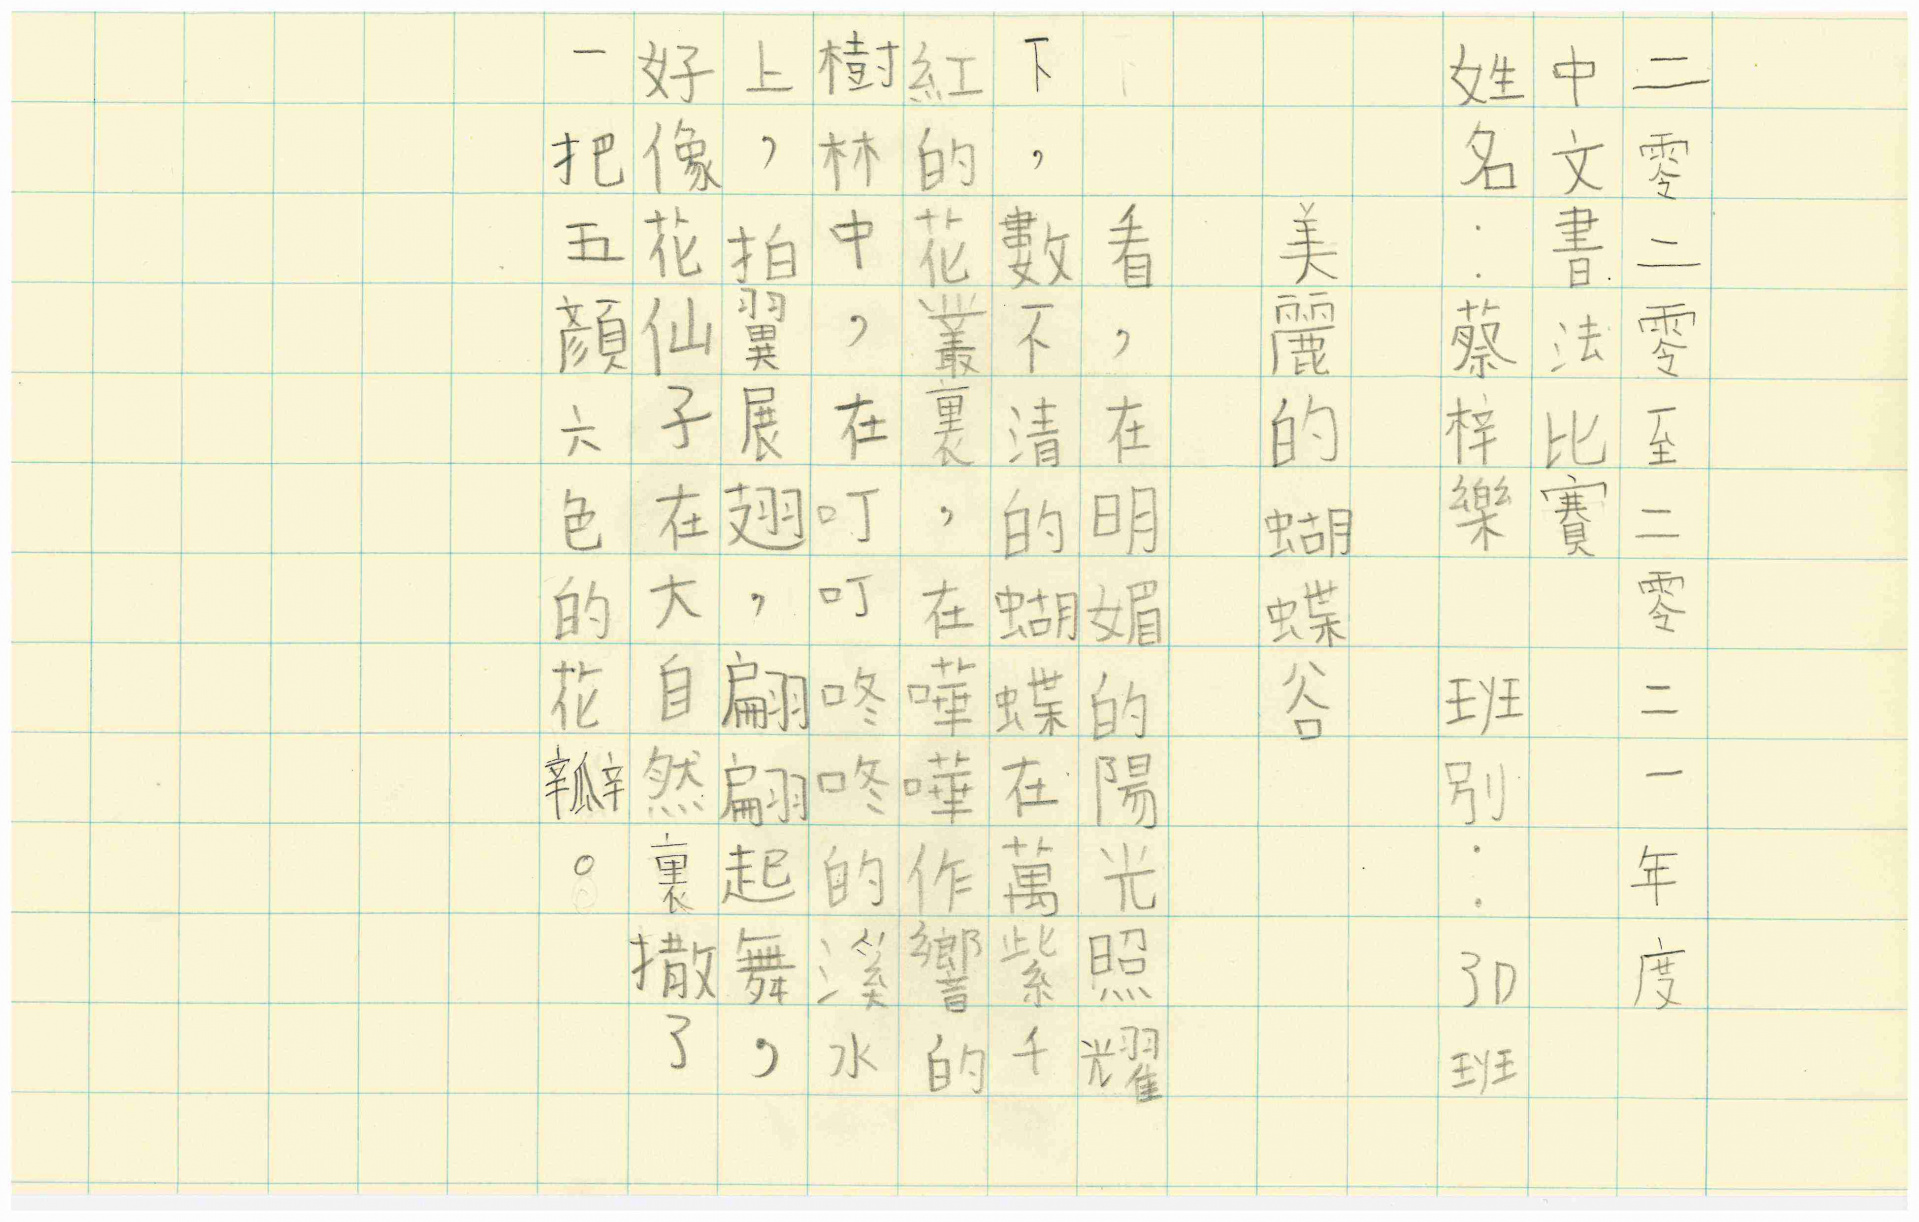 二零二零至二零二一年度
中文書法比賽
姓名：蔡梓樂 班別：3D班
美麗的蝴蝶谷
看，在明媚的陽光照耀
下，數不清的蝴蝶在萬紫千
紅的花叢裏，在嘩嘩作響的
樹林中，在叮叮咚咚的溪水
上，拍翼展翅，翩翩起舞，
好像花仙子在大自然裏撒了
一把五顏六色的花瓣。